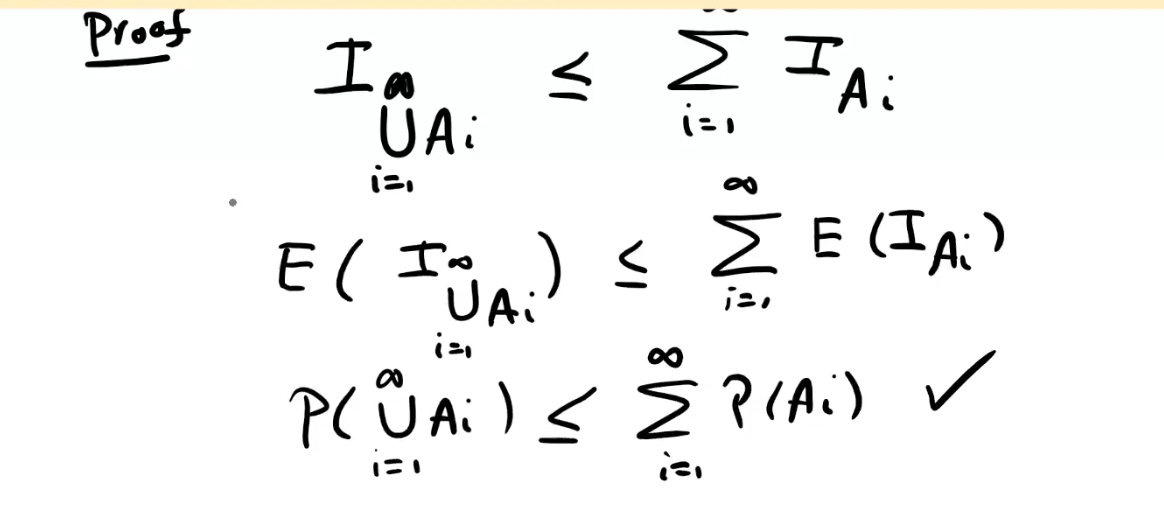 Proof
I_{\bigcup_{i=1}^{∞} A_i} ≤ \sum_{i=1}^{∞} I_{A_i}
E( I_{\bigcup_{i=1}^{∞} A_i} ) ≤ \sum_{i=1}^{∞} E (I_{A_i})
P( \bigcup_{i=1}^{∞} A_i ) ≤ \sum_{i=1}^{∞} P(A_i) ✓